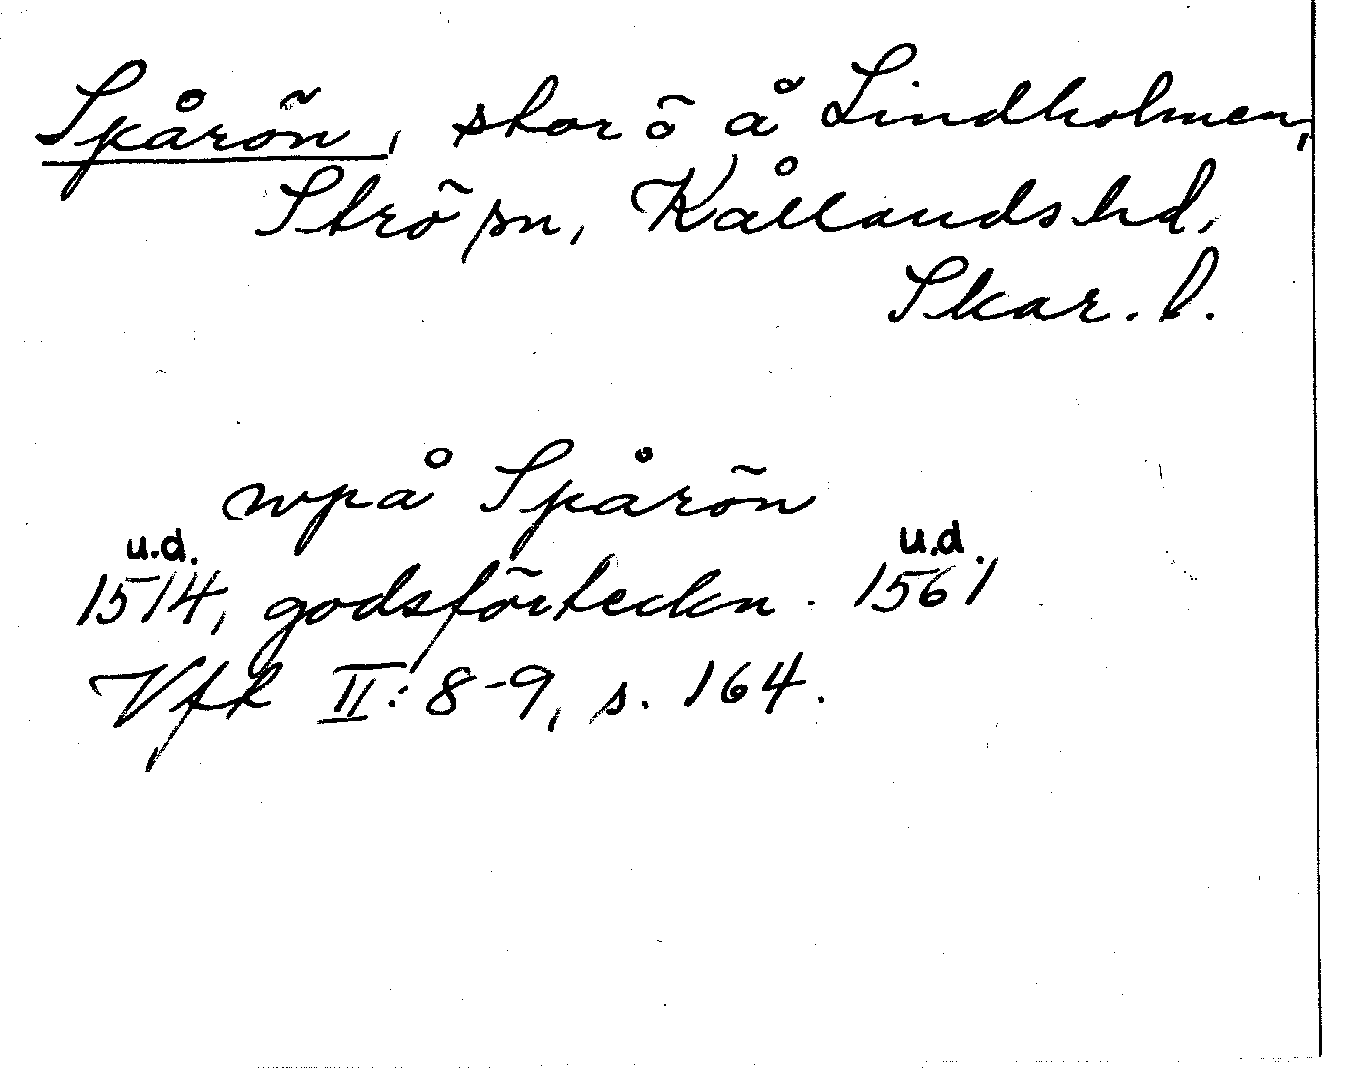 Spårön, stor ö å Lindholmen,
Strö sn, Kållands hd,
Skar. l.
wpå Spårön
u.d. u.d.
1514, godsförteckn. 1561
Vfk II: 8-9, s. 164.